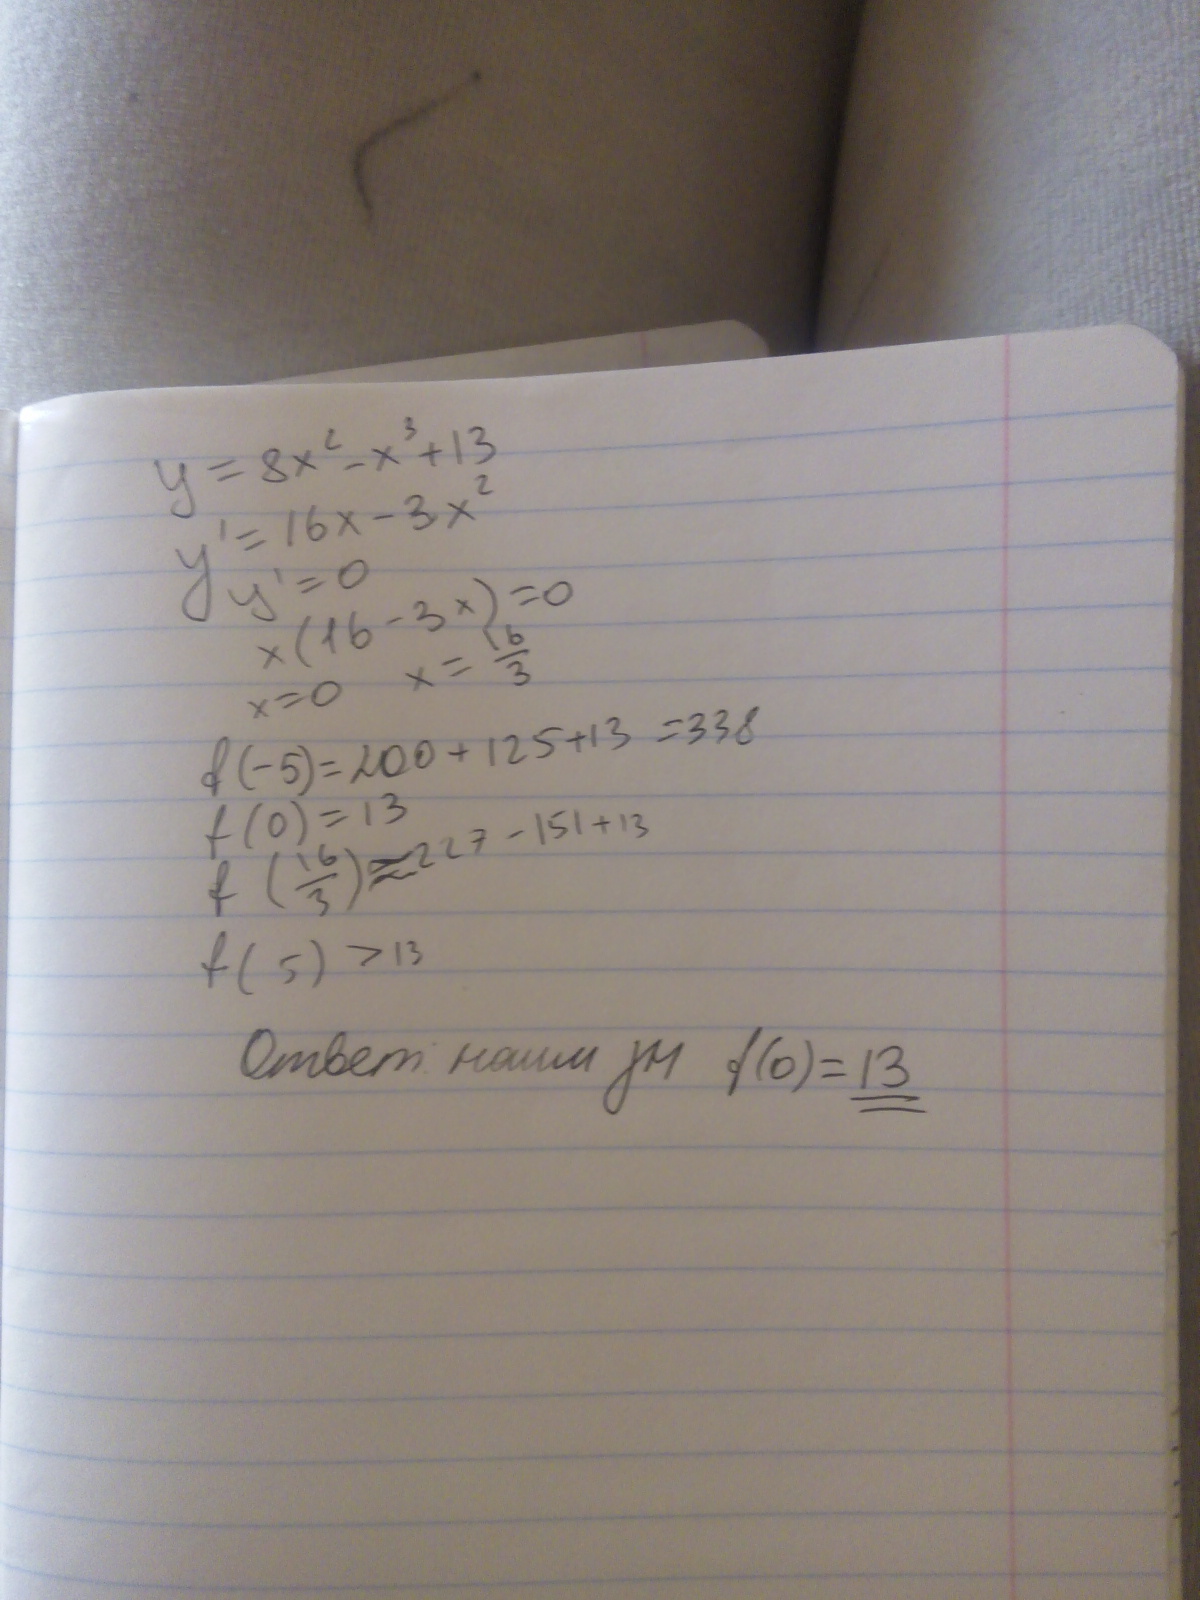 y = 8x² - x³ + 13
y' = 16x - 3x²
y' = 0
x(16 - 3x) = 0
x = 0 x = 16/3
f(-5) = 200 + 125 + 13 = 338
f(0) = 13
f(16/3) ≈ 227 - 151 + 13
f(5) > 13
Ответ: наим зн f(0) = 13